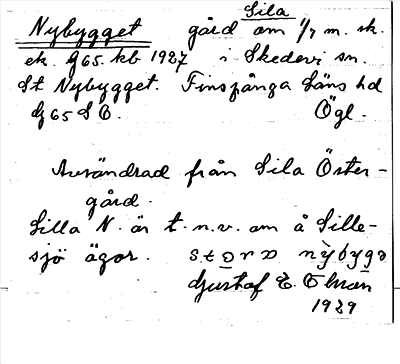 Sila
Nybygget gård om 1/7 m. sk.
ek. G65. kb 1927 i Skedevi sn.
St Nybygget. Finspånga Läns hd
G65SO. Ögl.
Avsöndrad från Sila Öster-
gård.
Lilla N. är t.n.v. om å Sille-
sjö ägor. stora nybygg
Gustaf E. Ohman
1929